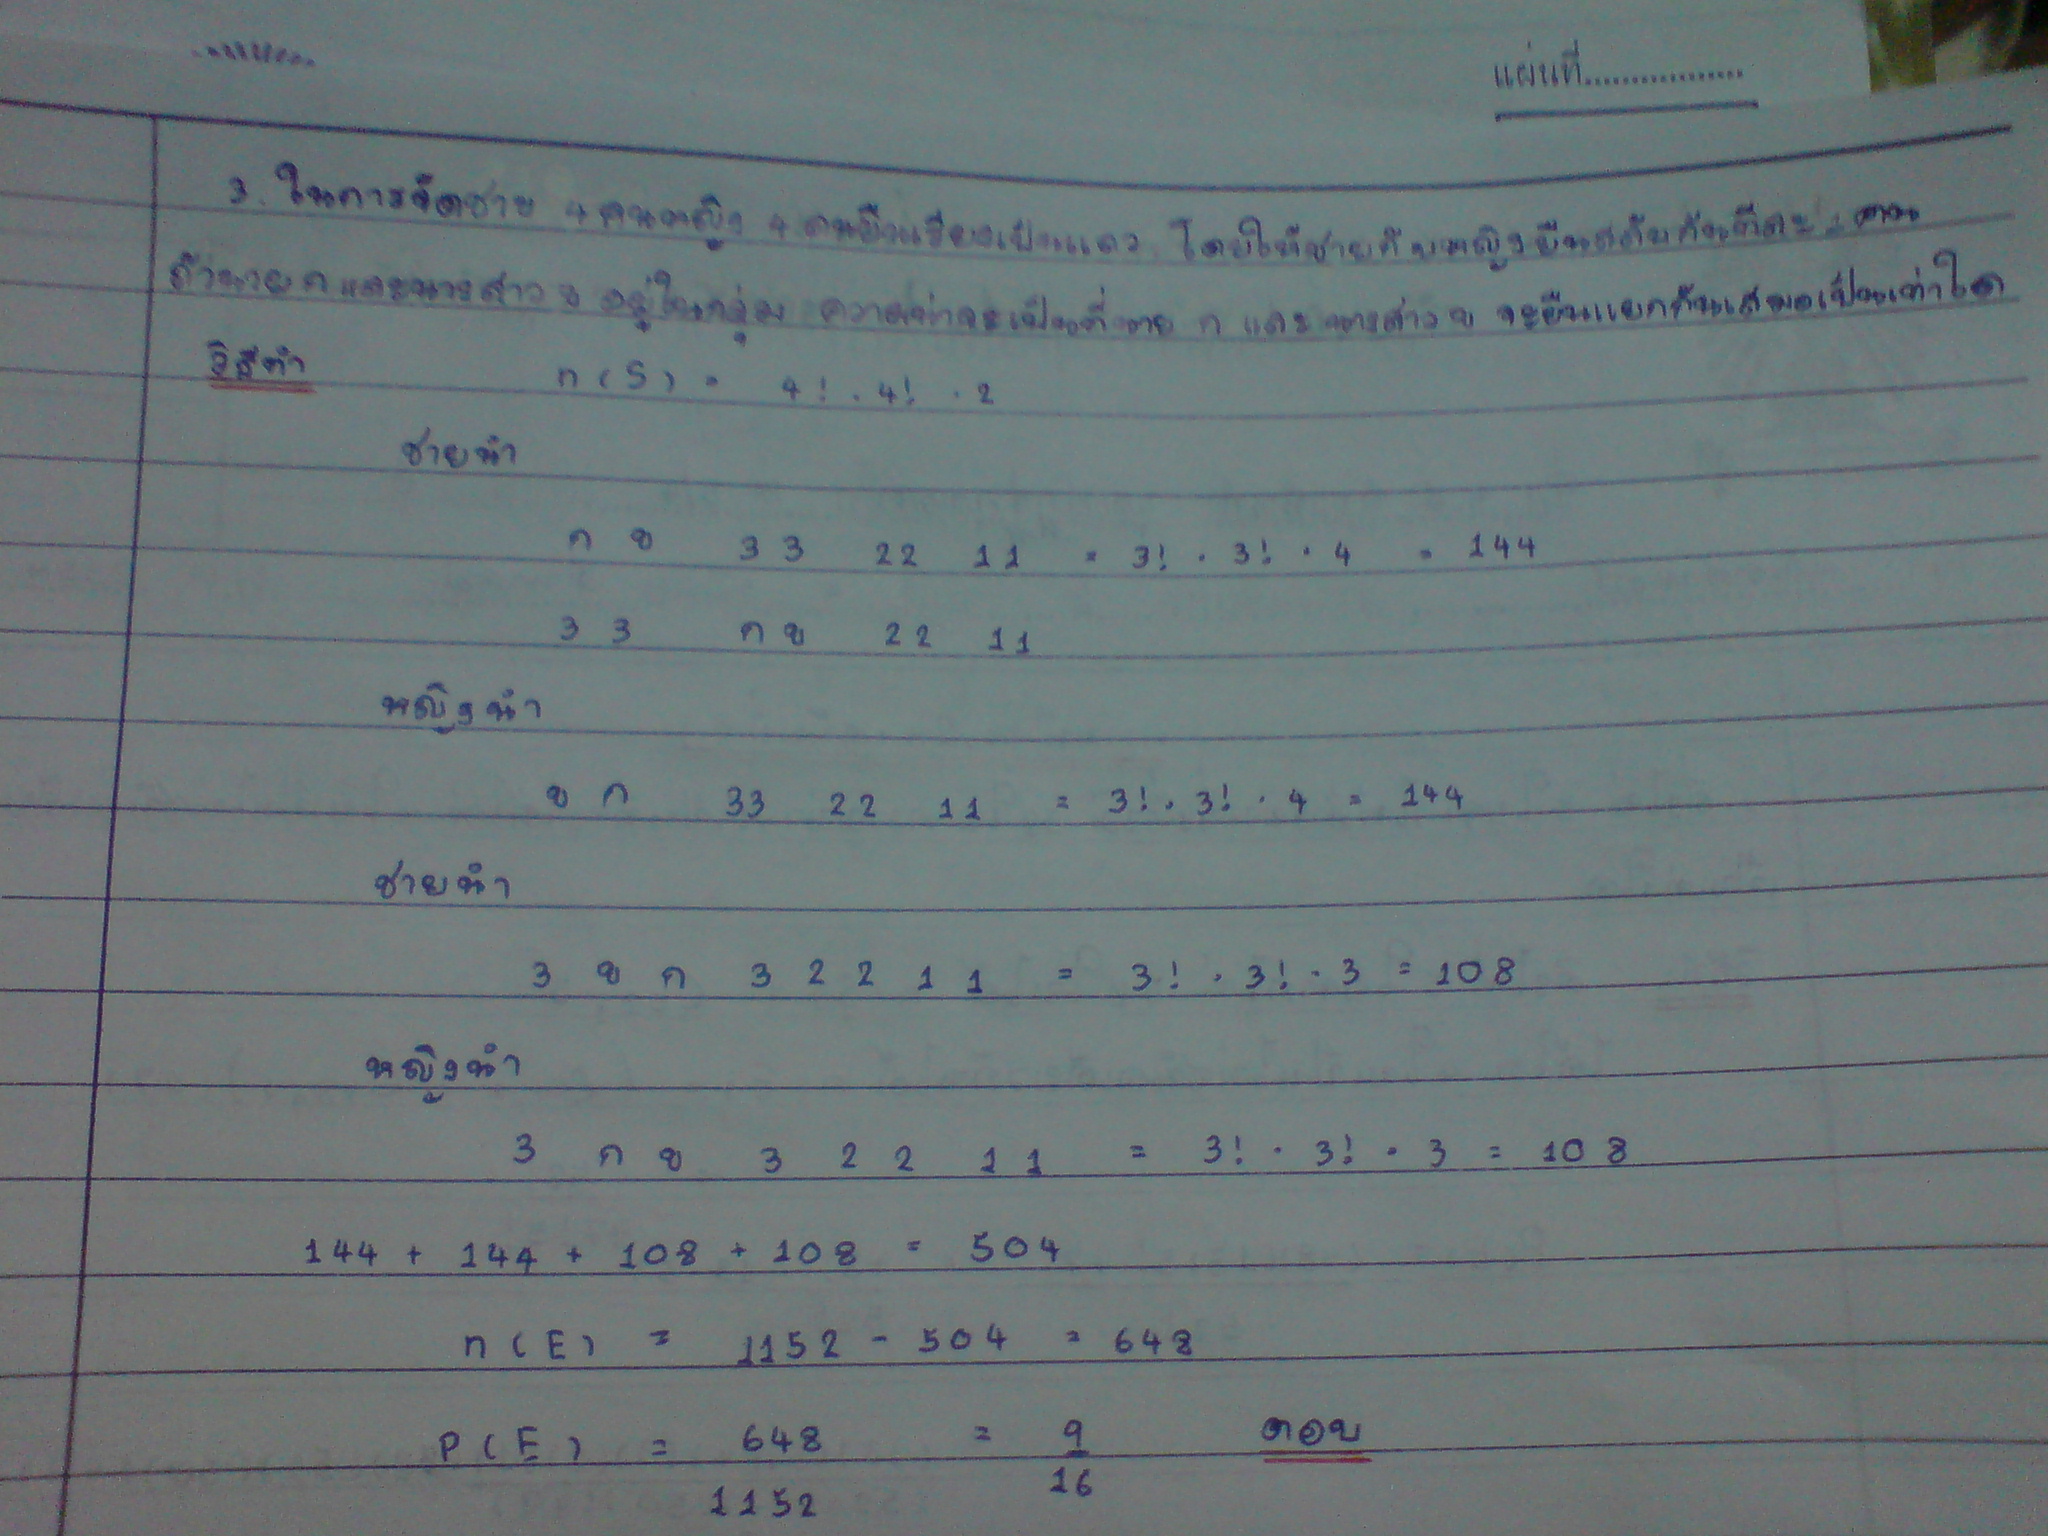 แผ่นที่..................
3. ในการจัดชาย 4 คนหญิง 4 คนยืนเรียงเป็นแถว โดยให้ชายกับหญิงยืนสลับกันทีละ 1 คน
ถ้านาย ก และนางสาว ข อยู่ในกลุ่ม ความน่าจะเป็นที่นาย ก และ นางสาว ข จะยืนแยกกันเสมอเป็นเท่าใด
วิธีทำ n(S) = 4! . 4! . 2
ชายนำ
ก ข 33 22 11 = 3! . 3! . 4 = 144
33 กข 22 11
หญิงนำ
ข ก 33 22 11 = 3! . 3! . 4 = 144
ชายนำ
3 ข ก 3 2 2 1 1 = 3! . 3! . 3 = 108
หญิงนำ
3 ก ข 3 2 2 1 1 = 3! . 3! . 3 = 108
144 + 144 + 108 + 108 = 504
n(E) = 1152 - 504 = 648
P(E) = 648 = 9 ตอบ
1152 16